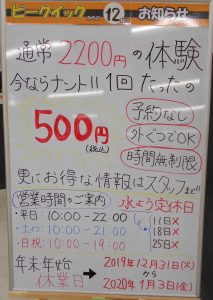 ビークイックからの12月のお知らせ
通常2200円の体験
今ならナント!!1回たったの
500円
(税込)
予約なし
外ぐつでOK
時間無制限
更にお得な情報はスタッフまで!!
営業時間のご案内
・平日:10:00-22:00
・土よう:10:00-21:00
・日祝:10:00-19:00
水よう定休日
11日×
18日×
25日×
年末年始
休業日
→
2019年12月31日(火)
から
2020年1月3日(金)